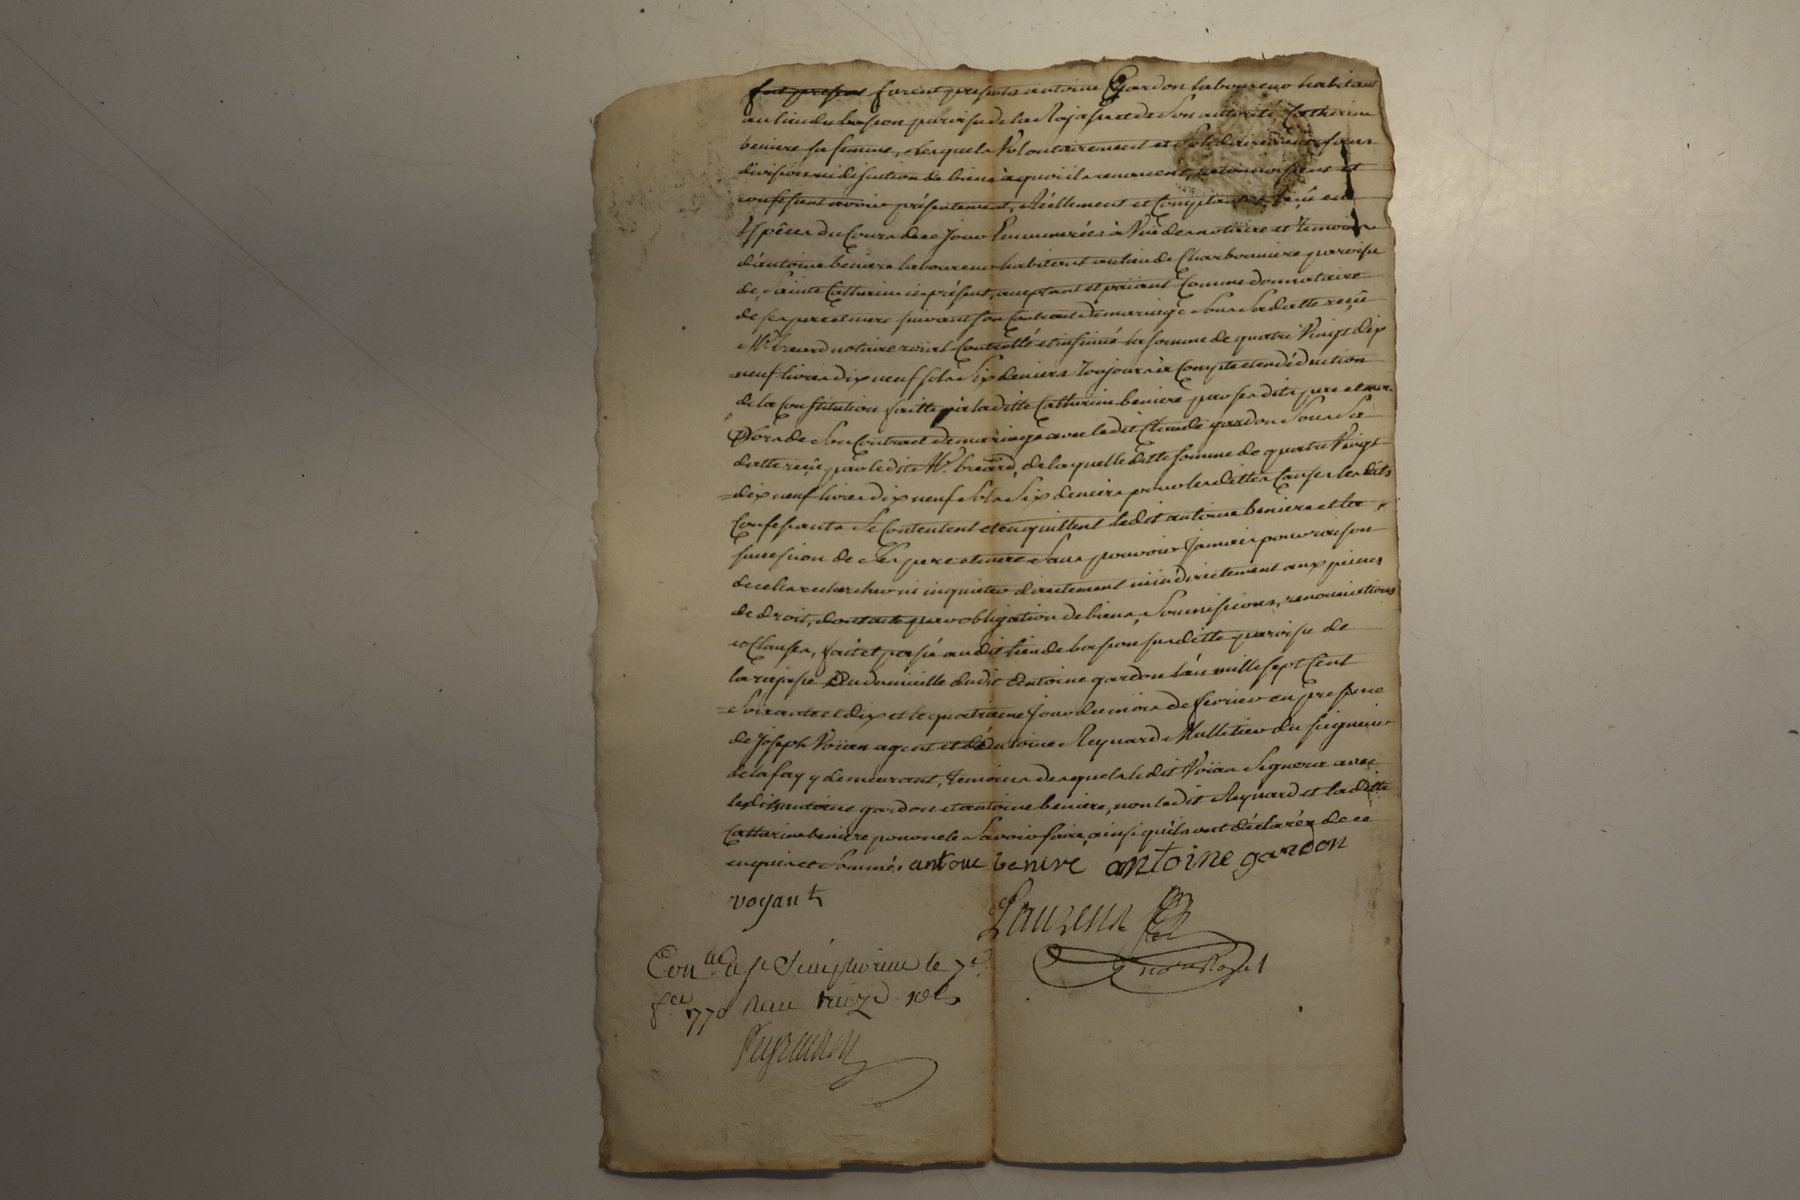 fut present furent presents antoine Gardon laboureur habitant
au lieu du basson paroise de la Rajasse et de son autorité Catherine
beniere sa femme, lesquels volontairement et solidairement sans
division ni discution de biens à quoi ils renoncent, reconnoissent et
confessent avoir présentement, réellement et comptant reçû en
espêces du cours de ce jour Enumerées à vuë des notaire et temoins
d'antoine beniere laboureur habitant au lieu de Charbonniere paroise
de Sainte Catherine ci présent, acceptant et paiant Comme donnataire
de ses pere et mere suivant son Contrat de mariage sous sa datte reçû
Me breard notaire roial Controllé et insinué la somme de quatre vingt dix
=neuf livres dix neuf sols six deniers toujours à Compte et en déduction
de la Constitution faitte à la ditte Catherine beniere par ses dits pere et mere
lors de son Contract de mariage avec ledit Claude gardon sous sa
datte reçû par le dit Me breard, de laquelle ditte somme de quatre vingt
=dix neuf livres dix neuf sols six deniers pour les dittes Causes les dits
Confessants se Contentent et en quittent ledit antoine beniere et la
succession de ses pere et mere sans pouvoir jamais pour raison
de ce les rechercher ni inquieter directement ni indirectement aux peines
de droit, dont acte par obligation de biens, soumissions, renonciations
et Clauses, fait et passé au dit lieu de basson susditte paroise de
la rajasse au domicille dudit Antoine gardon l'an mille sept Cent
=soixante et dix et le quatrieme jour du mois de fevrier en presence
de Joseph Voïan agent et d'Antoine Reynard Mulletier du seigneur
de lafay y demeurant, temoins desquels le dit Voïan signera avec
lesdits antoine gardon et antoine beniere, non ledit Reynard et la ditte
Catherine beniere pour ne le savoir faire, ainsi qu'ils ont déclarés de ce
enquis et sommés antoine beniere antoine gardon
voyant
Laurens
nore Royal
Conllé à St Simphorien le 7e
fer 1770 Reçu treize sols
Peyrachon